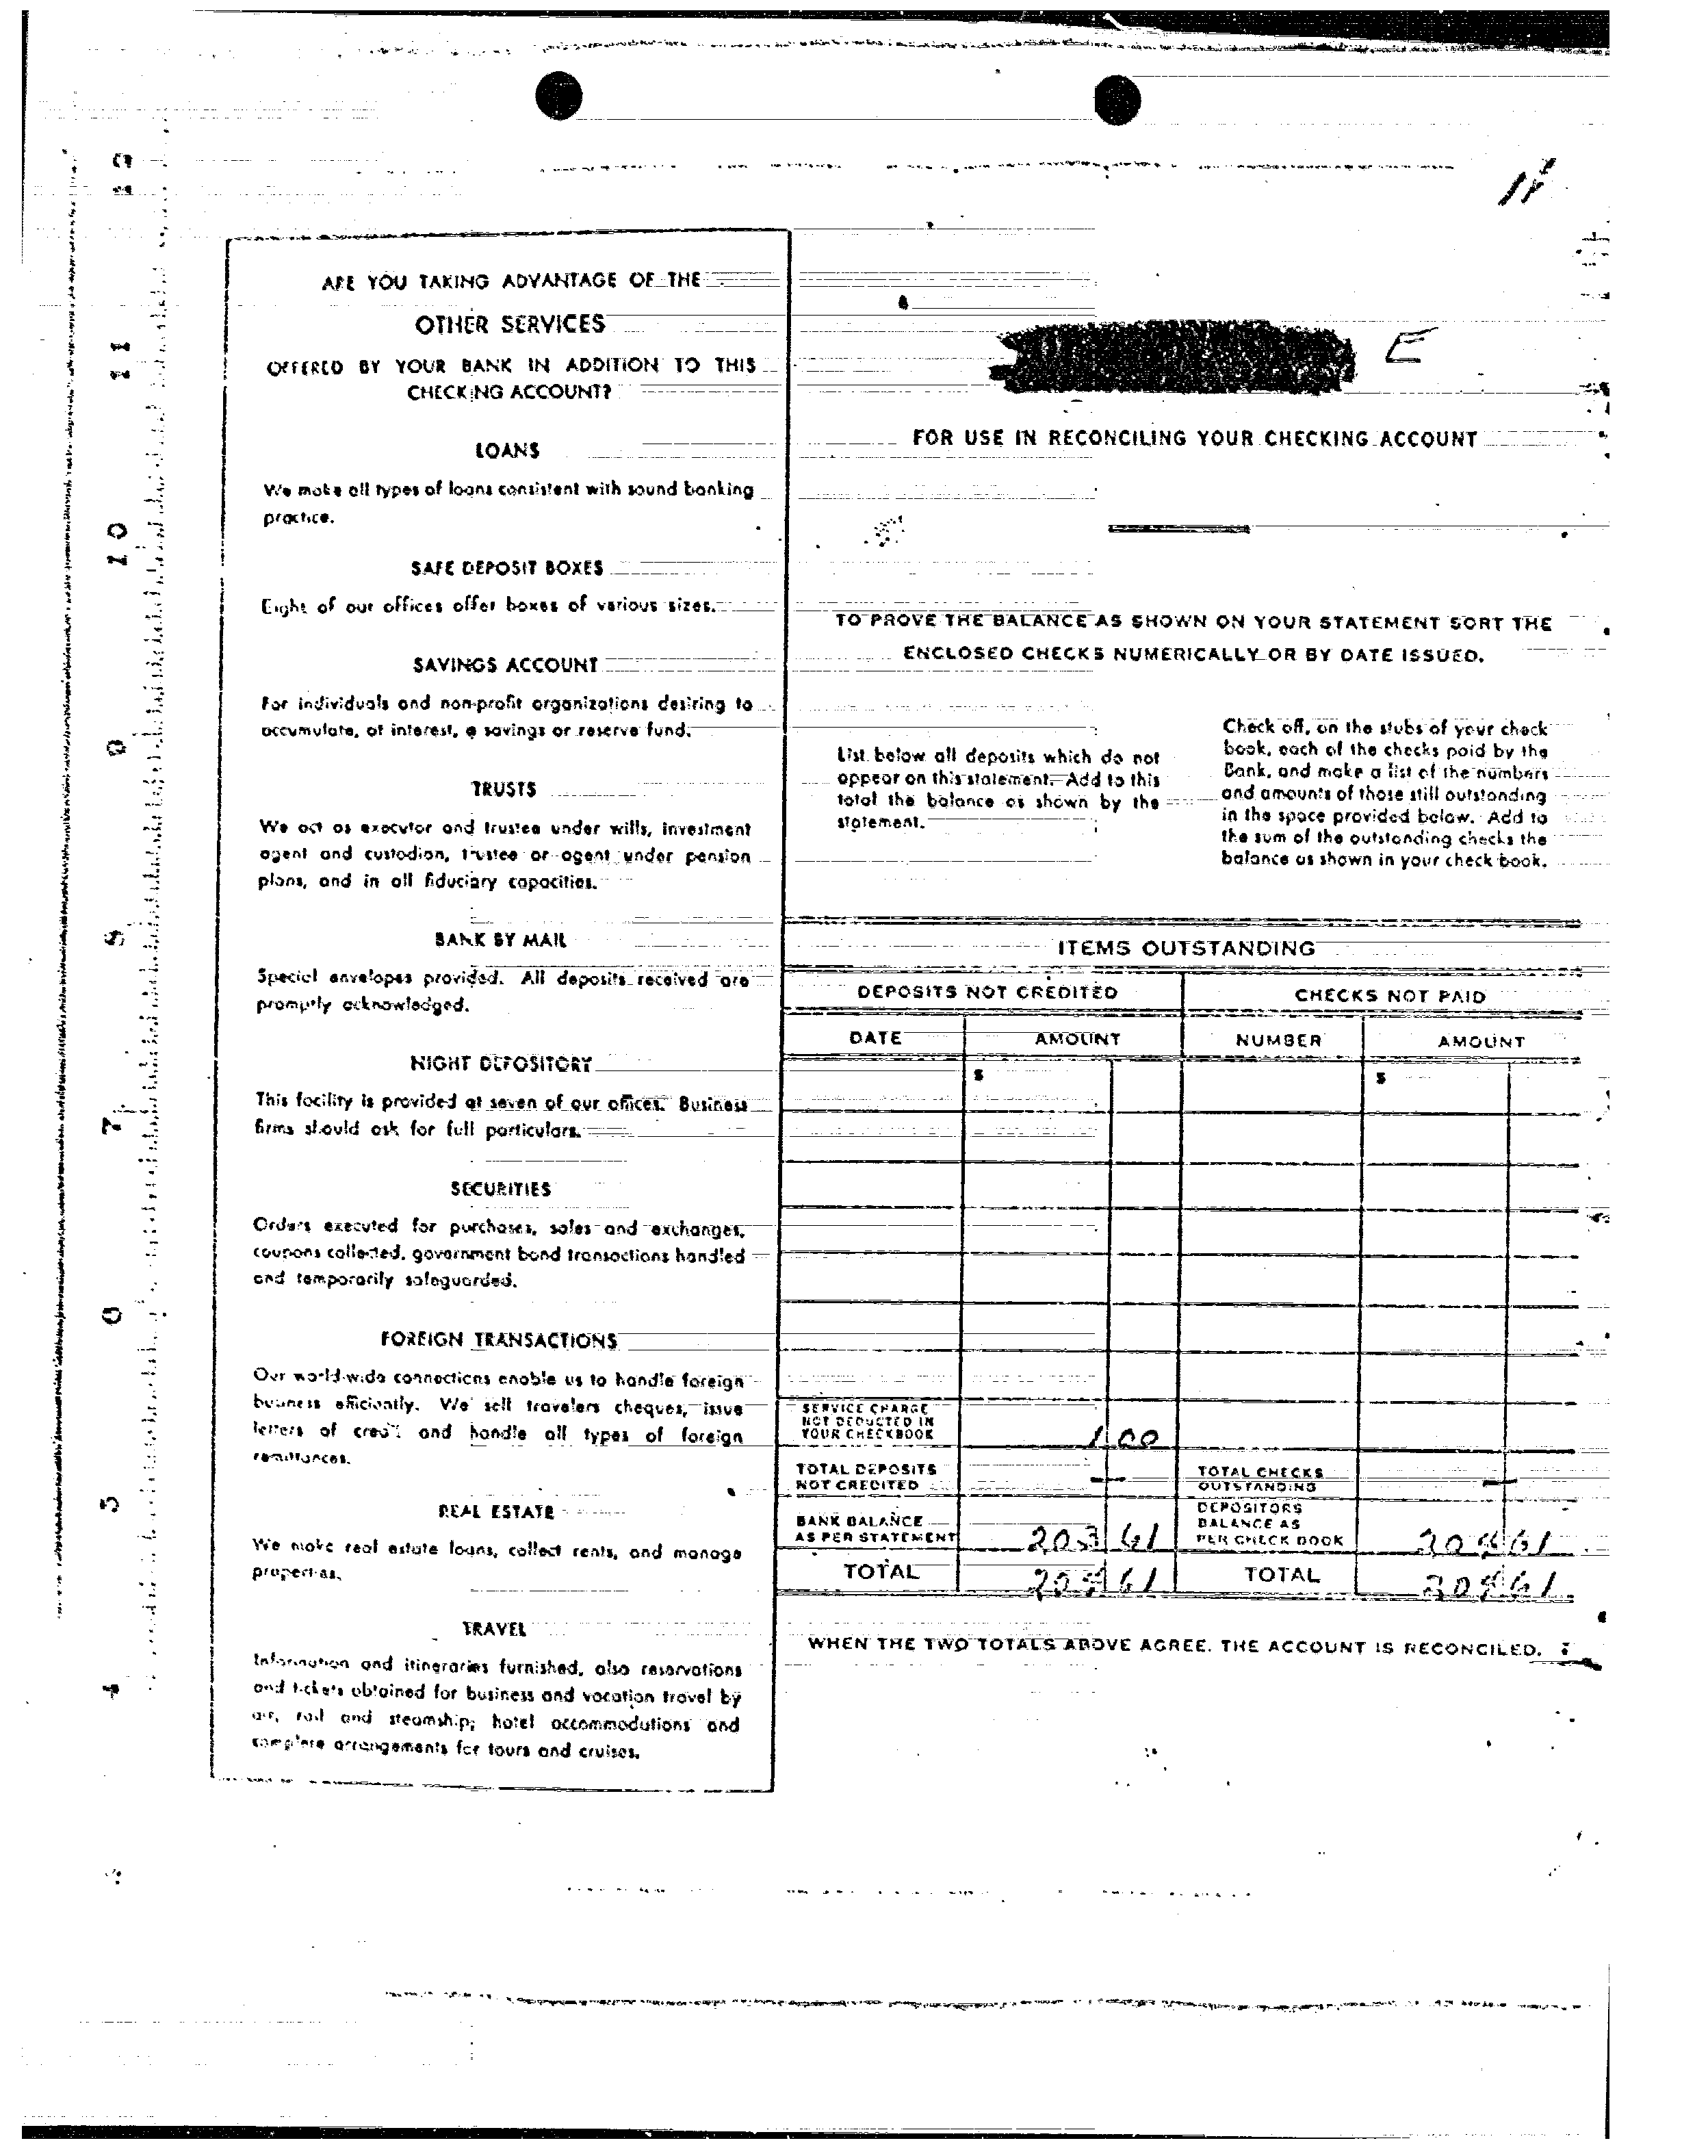 ARE YOU TAKING ADVANTAGE OF THE
OTHER SERVICES
OFFERED BY YOUR BANK IN ADDITION TO THIS
CHECKING ACCOUNT?
LOANS
We make all types of loans consistent with sound banking
practice.
SAFE DEPOSIT BOXES
Eight of our offices offer boxes of various sizes.
SAVINGS ACCOUNT
For individuals and non-profit organizations desiring to
accumulate, at interest, a savings or reserve fund.
TRUSTS
We act as executor and trustee under wills, investment
agent and custodian, trustee or agent under pension
plans, and in all fiduciary capacities.
BANK BY MAIL
Special envelopes provided. All deposits received are
promptly acknowledged.
NIGHT DEPOSITORY
This facility is provided at seven of our offices. Business
firms should ask for full particulars.
SECURITIES
Orders executed for purchases, sales and exchanges,
coupons collected, government bond transactions handled
and temporarily safeguarded.
FOREIGN TRANSACTIONS
Our world-wide connections enable us to handle foreign
business efficiently. We sell travelers cheques, issue
letters of credit and handle all types of foreign
remittances.
REAL ESTATE
We make real estate loans, collect rents, and manage
properties.
TRAVEL
Information and itineraries furnished, also reservations
and tickets obtained for business and vacation travel by
air, rail and steamship; hotel accommodations and
complete arrangements for tours and cruises.
E
FOR USE IN RECONCILING YOUR CHECKING ACCOUNT
TO PROVE THE BALANCE AS SHOWN ON YOUR STATEMENT SORT THE
ENCLOSED CHECKS NUMERICALLY OR BY DATE ISSUED.
List below all deposits which do not
appear on this statement. Add to this
total the balance as shown by the
statement.
Check off, on the stubs of your check
book, each of the checks paid by the
Bank, and make a list of the numbers
and amounts of those still outstanding
in the space provided below. Add to
the sum of the outstanding checks the
balance as shown in your check book.
ITEMS OUTSTANDING
DEPOSITS NOT CREDITED CHECKS NOT PAID
DATE AMOUNT NUMBER AMOUNT
$ $
SERVICE CHARGE
NOT DEDUCTED IN
YOUR CHECKBOOK 1 00
TOTAL DEPOSITS
NOT CREDITED —
TOTAL CHECKS
OUTSTANDING —
BANK BALANCE
AS PER STATEMENT 203 61
DEPOSITORS
BALANCE AS
PER CHECK BOOK 204 61
TOTAL 204 61 TOTAL 204 61
WHEN THE TWO TOTALS ABOVE AGREE. THE ACCOUNT IS RECONCILED.